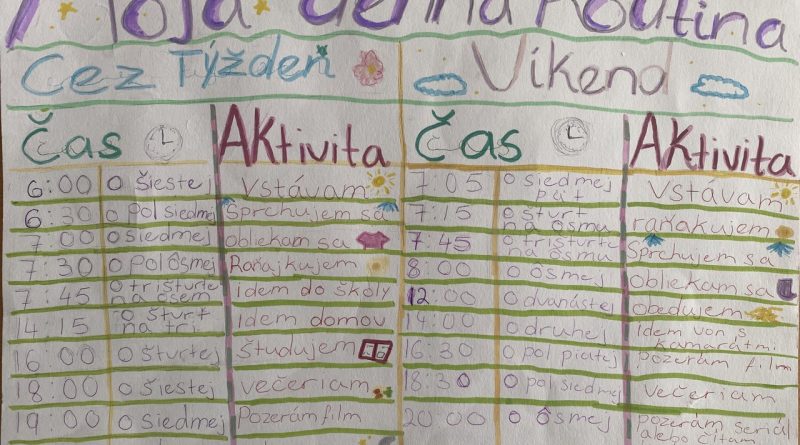 Moja denná Rutina
Cez Týždeň
Víkend
Čas Aktivita Čas Aktivita
6:00 o šiestej Vstávam 7:05 o siedmej päť Vstávam
6:30 o pol siedmej Sprchujem sa 7:15 o štvrť na ôsmu raňakujem
7:00 o siedmej obliekam sa 7:45 o trištvrte na ôsmu Sprchujem sa
7:30 o pol ôsmej Raňajkujem 8:00 o ôsmej obliekam sa
7:45 o trištvrte na osem idem do školy 12:00 o dvanástej obedujem
14:15 o štvrť na tri Idem domov 14:00 o druhej Idem von s kamarátmi
16:00 o štvrtej študujem 16:30 o pol piatej pozerám film
18:00 o šiestej večeriam 18:30 o pol siedmej večeriam
19:00 o siedmej Pozerám film 20:00 o ôsmej pozerám seriál alebo čítam